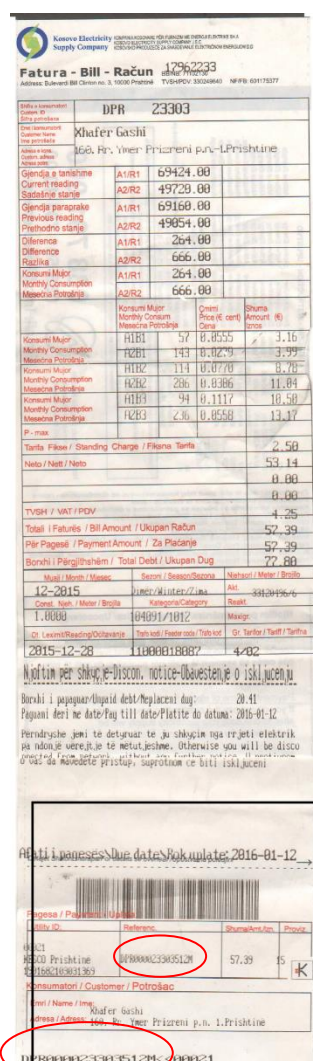 Kosovo Electricity
Supply Company
Fatura - Bill - Račun 17962233
Shifra e konsumatorit
Custom. ID
Šifra potrošača
DPR 23303
Customer Name
Xhafer Gashi
160. Rr. Ymer Prizreni p.n-1.Prishtine
Gjendja e tanishme
Current reading
Sadašnje stanje
A1/R1 69424.00
A2/R2 49720.00
Gjendja paraprake
Previous reading
Prethodno stanje
A1/R1 69160.00
A2/R2 49054.00
Diferenca
Difference
Razlika
A1/R1 264.00
A2/R2 666.00
Konsumi Mujor
Monthly Consumption
Mesečna Potrošnja
A1/R1 264.00
A2/R2 666.00
Konsumi Mujor
Monthly Consum
Mesečna Potrošnja
Çmimi
Price (€ cent)
Cena
Shuma
Amount (€)
Iznos
Konsumi Mujor
Monthly Consumption
Mesečna Potrošnja
A1B1 57 0.0555 3.16
A2B1 143 3.99
Konsumi Mujor
Monthly Consumption
Mesečna Potrošnja
A1B2 114 0.0770 8.78
A2B2 286 0.0386 11.04
Konsumi Mujor
Monthly Consumption
Mesečna Potrošnja
A1B3 94 0.1117 10.50
A2B3 236 0.0558 13.17
P - max
Tarifa Fikse / Standing Charge / Fiksna Tarifa 2.50
Neto / Nett / Neto 53.14
0.00
0.00
TVSH / VAT / PDV 4.25
Totali i Faturës / Bill Amount / Ukupan Račun 57.39
Për Pagesë / Payment Amount / Za Plaćanje 57.39
Borxhi i Përgjithshëm / Total Debt / Ukupan Dug 77.80
Muaji / Month / Mesec Sezoni / Season/Sezona Njehsori / Meter / Brojilo
12-2015 Dimer/Winter/Zima Akt. 33120496/6
Const. Njeh. / Meter / Brojila Kategoria/Category Reakt.
1.0000 104091/1012 Maxigr.
Dt. Leximit/Reading/Očitavanje Trafo kodi / Feeder code / Trafo kod Gr. Tarifor / Tariff / Tarifna
2015-12-28 11000018087 4/02
Njoftim për shkyçje-Discon. notice-Obavestenje o iskljucenju
Borxhi i papaguar/Unpaid debt/Neplaceni dug: 20.41
Paguani deri me date/Pay till date/Platite do datuma: 2016-01-12
Përndryshe jemi të detyruar te ju shkyçim nga rrjeti elektrik
pa ndonjë verejtje të mëtutjeshme. Otherwise you will be disco
o vas da mavedete pristup, suprotnom ce biti iskljuceni
Afati i pageses\Due date\Rok uplate: 2016-01-12
Utility ID: Referenc. Shuma/Amt./Izn. Proviz.
KESCO Prishtine DPR000023303512M 57.39 15
1501682103031369
K
Konsumatori / Customer / Potrošac
Emri / Name / Ime:
Xhafer Gashi
Adresa / Adress:
160. Rr. Ymer Prizreni p.n. 1.Prishtine
DPR000023303512M<400021